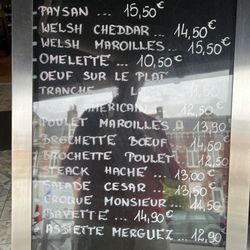 PAYSAN ... 15,50€
WELSH CHEDDAR ... 14,50€
WELSH MAROILLES ... 15,50€
OMELETTE ... 10,50€
OEUF SUR LE PLAT
TRANCHE
AMERICAIN 12,50€
POULET MAROILLES ... 13,90
BROCHETTE BŒUF 14,50
BROCHETTE POULET ... 12,50
STEACK HACHÉ ... 13,00€
SALADE CESAR ... 13,50€
CROQUE MONSIEUR ... 11,50
BAVETTE ... 14,90€
ASSIETTE MERGUEZ ... 12,90